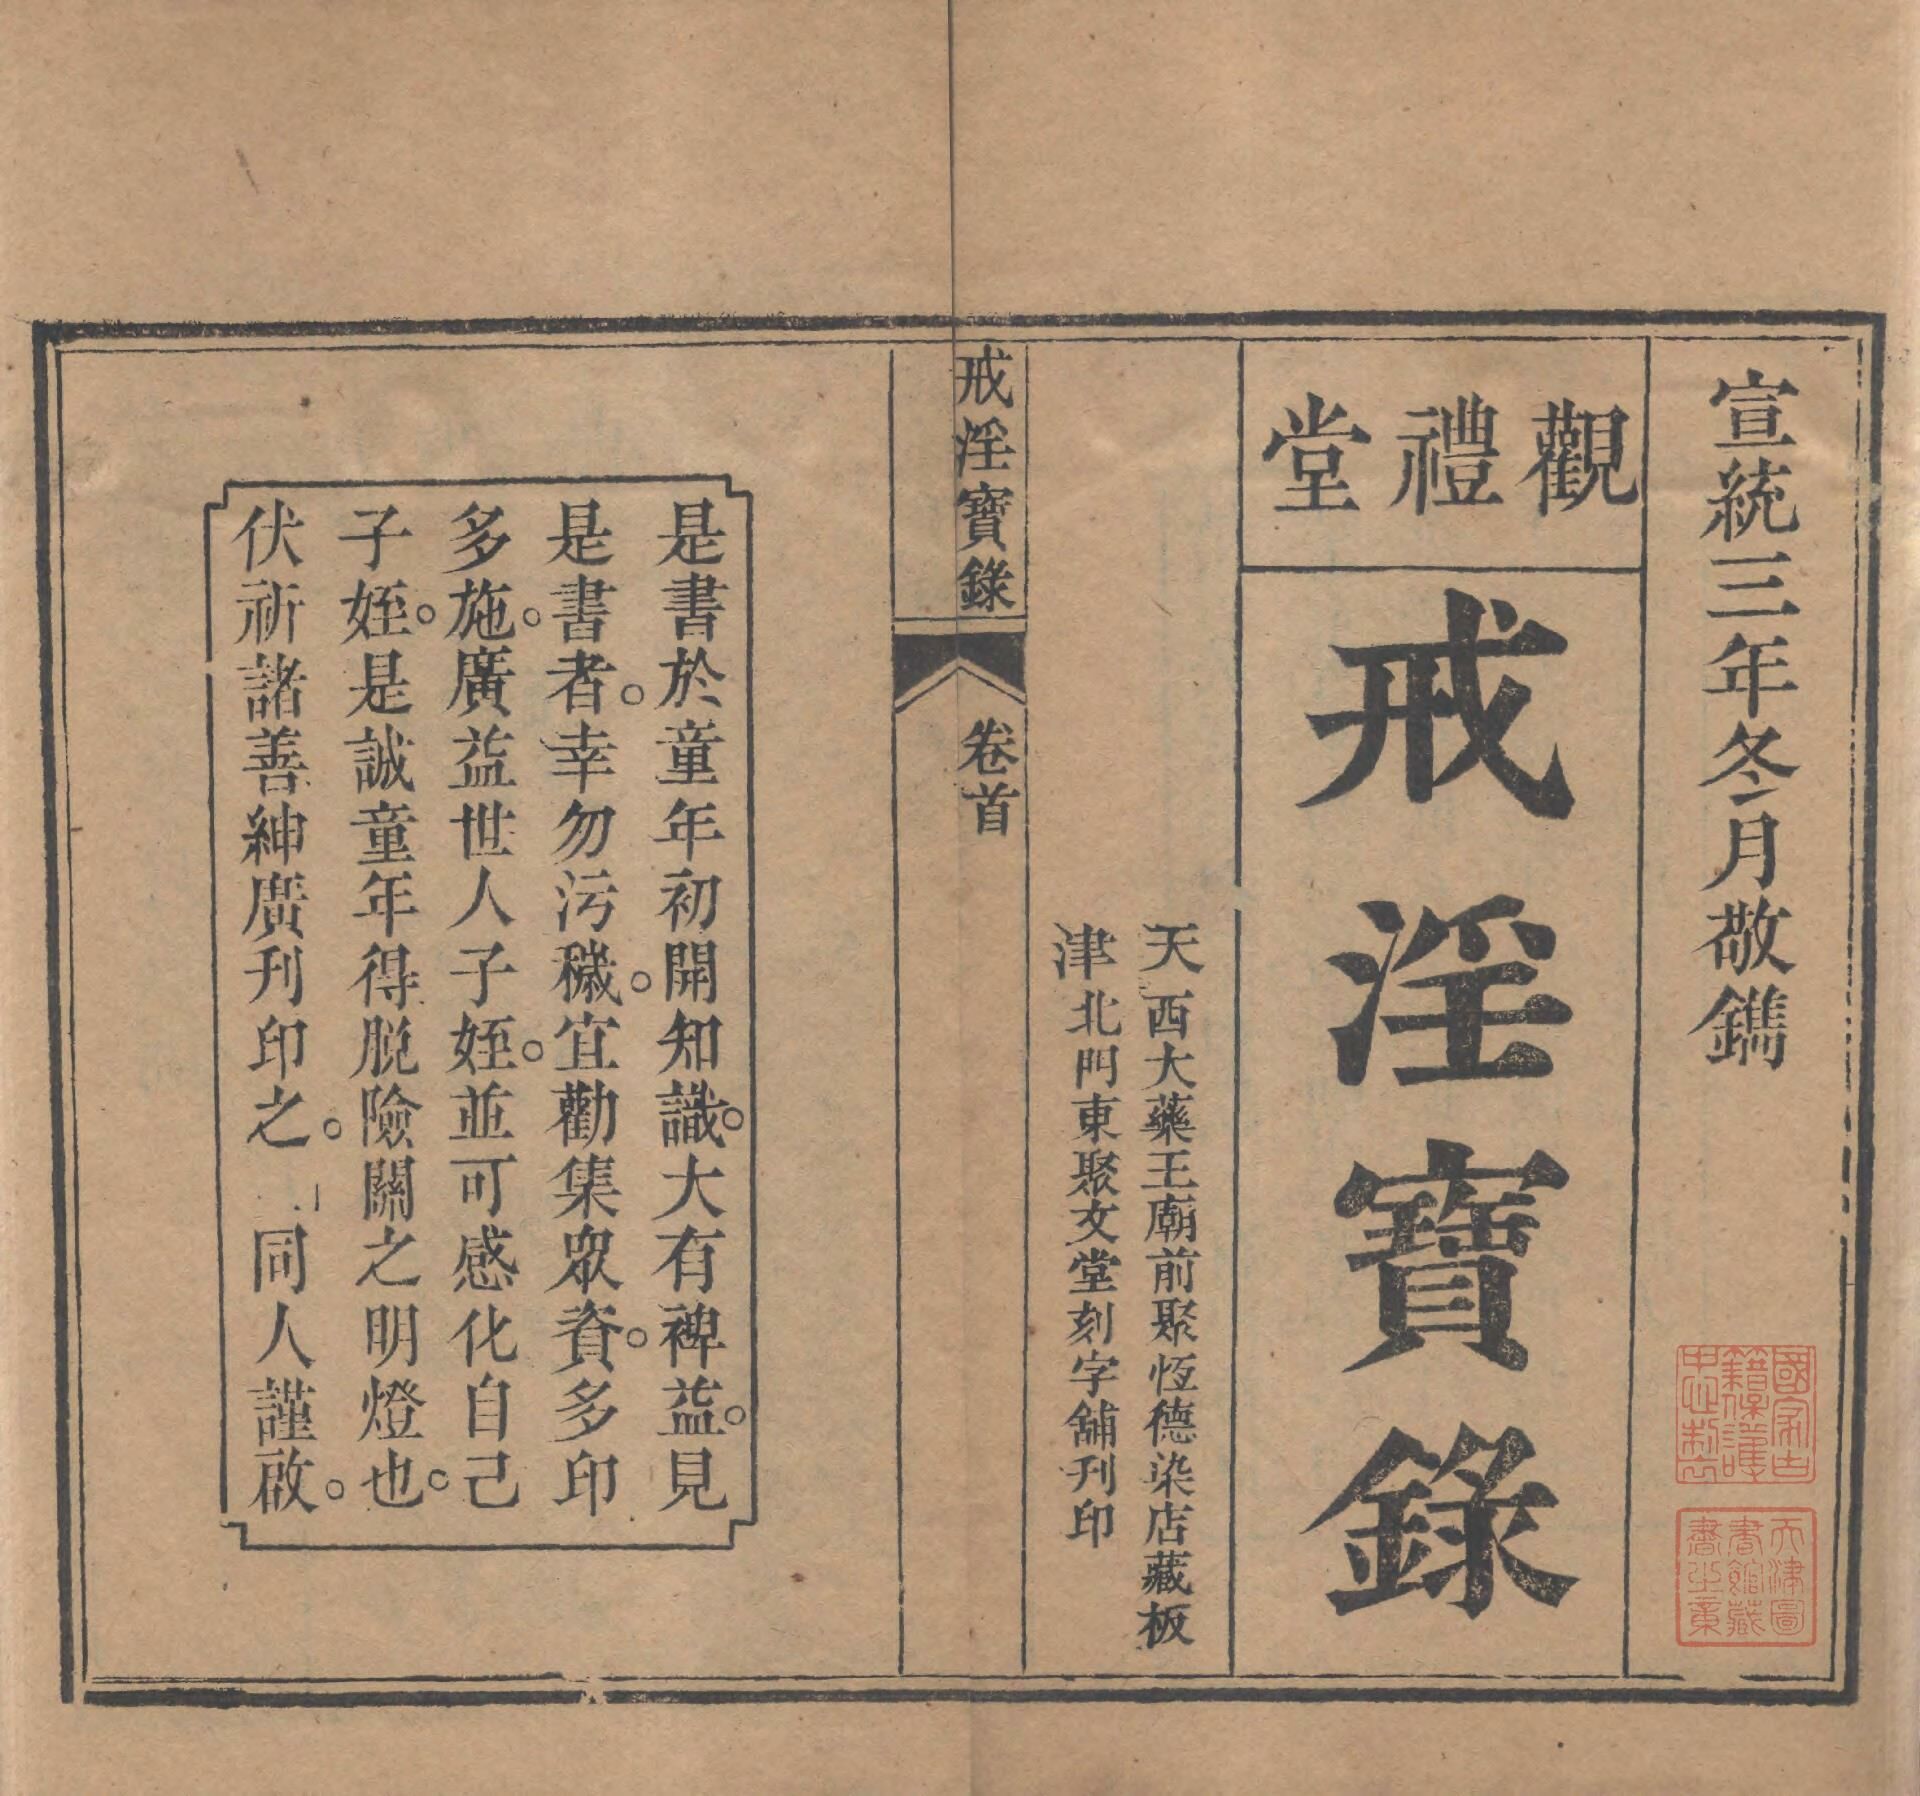 宣統三年冬月敬鐫
觀禮堂
戒淫寶錄
天西大藥王廟前聚恆德染店藏板
津北門東聚文堂刻字舖刊印
戒淫寶錄
卷首
是書於童年初開知識。大有裨益。見
是書者。幸勿污穢。宜勸集眾資。多印
多施。廣益世人子姪。並可感化自己
子姪。是誠童年得脫險關之明燈也。
伏祈諸善紳廣刊印之。 同人謹啟。
國家古
籍保護
中心制
天津圖
書館藏
書之章